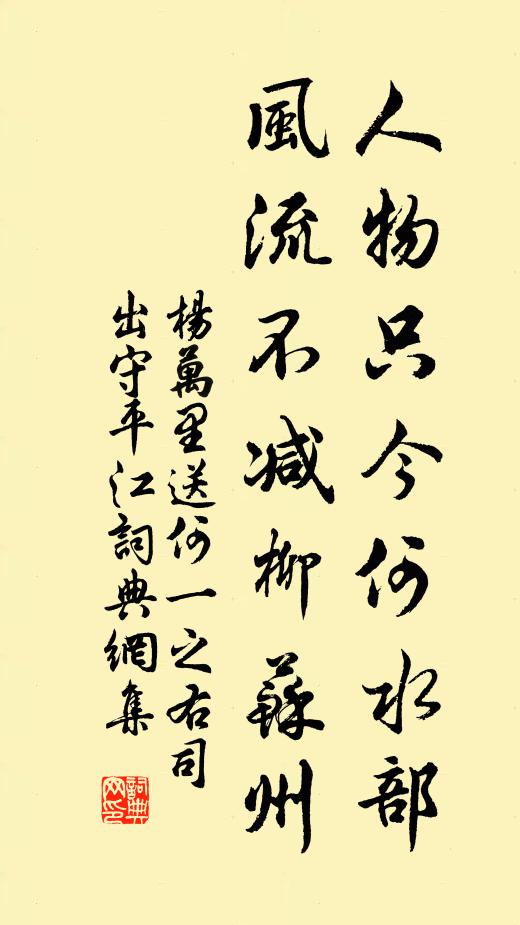 人物只今何水部
風流不减柳蘇州
楊萬里送何一之右司
出守平江詞典網集
詞典
網印